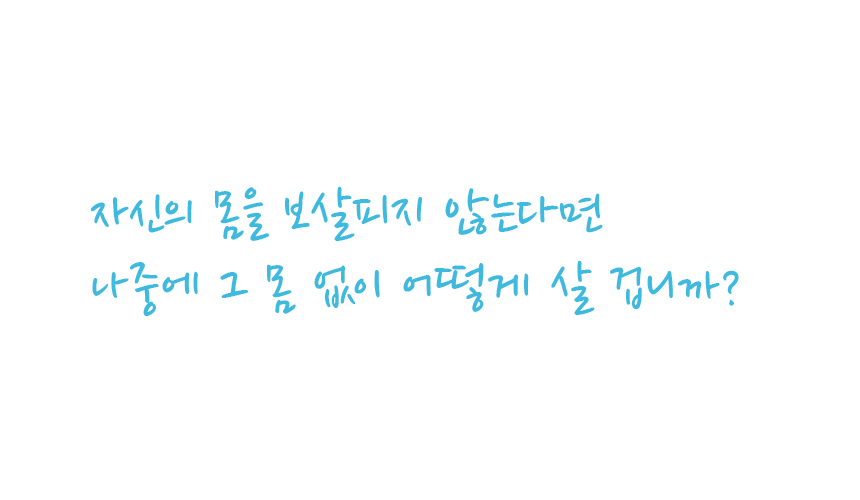 자신의 몸을 보살피지 않는다면
나중에 그 몸 없이 어떻게 살 겁니까?